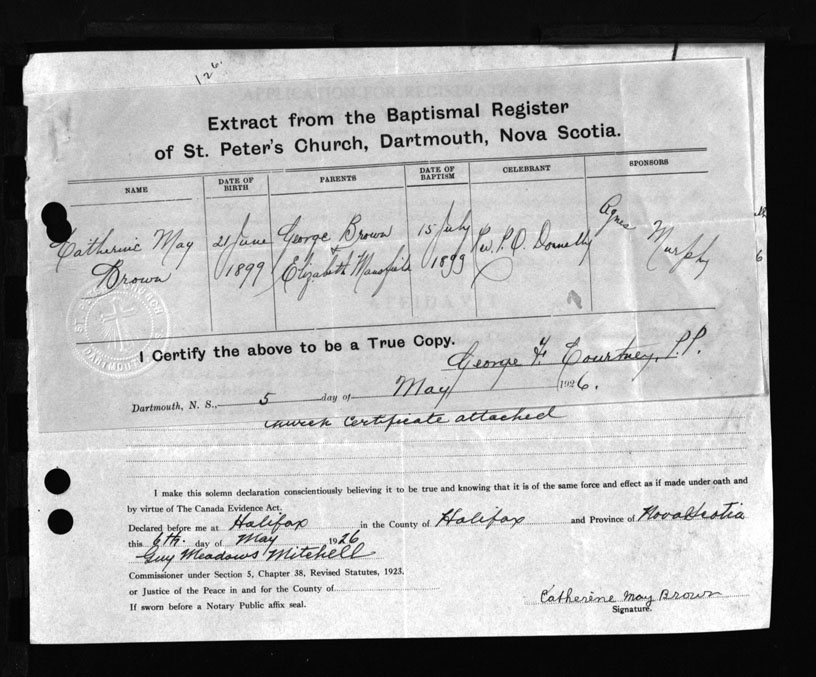 126.
Extract from the Baptismal Register
of St. Peter's Church, Dartmouth, Nova Scotia.
NAME
DATE OF BIRTH
PARENTS
DATE OF BAPTISM
CELEBRANT
SPONSORS
Catherine May Brown
21 June 1899
George Brown + Elizabeth Mansfield
15 July 1899
Rev. P.O. Donnelly
Agnes Murphy
I Certify the above to be a True Copy.
George F. Courtney, P.P.
Dartmouth, N. S., 5 day of May 1926.
Church Certificate attached
I make this solemn declaration conscientiously believing it to be true and knowing that it is of the same force and effect as if made under oath and
by virtue of The Canada Evidence Act.
Declared before me at Halifax in the County of Halifax and Province of Nova Scotia
this 6th. day of May 1926
Guy Meadows Mitchell
Commissioner under Section 5, Chapter 38, Revised Statutes, 1923.
or Justice of the Peace in and for the County of
If sworn before a Notary Public affix seal.
Catherine May Brown
Signature.